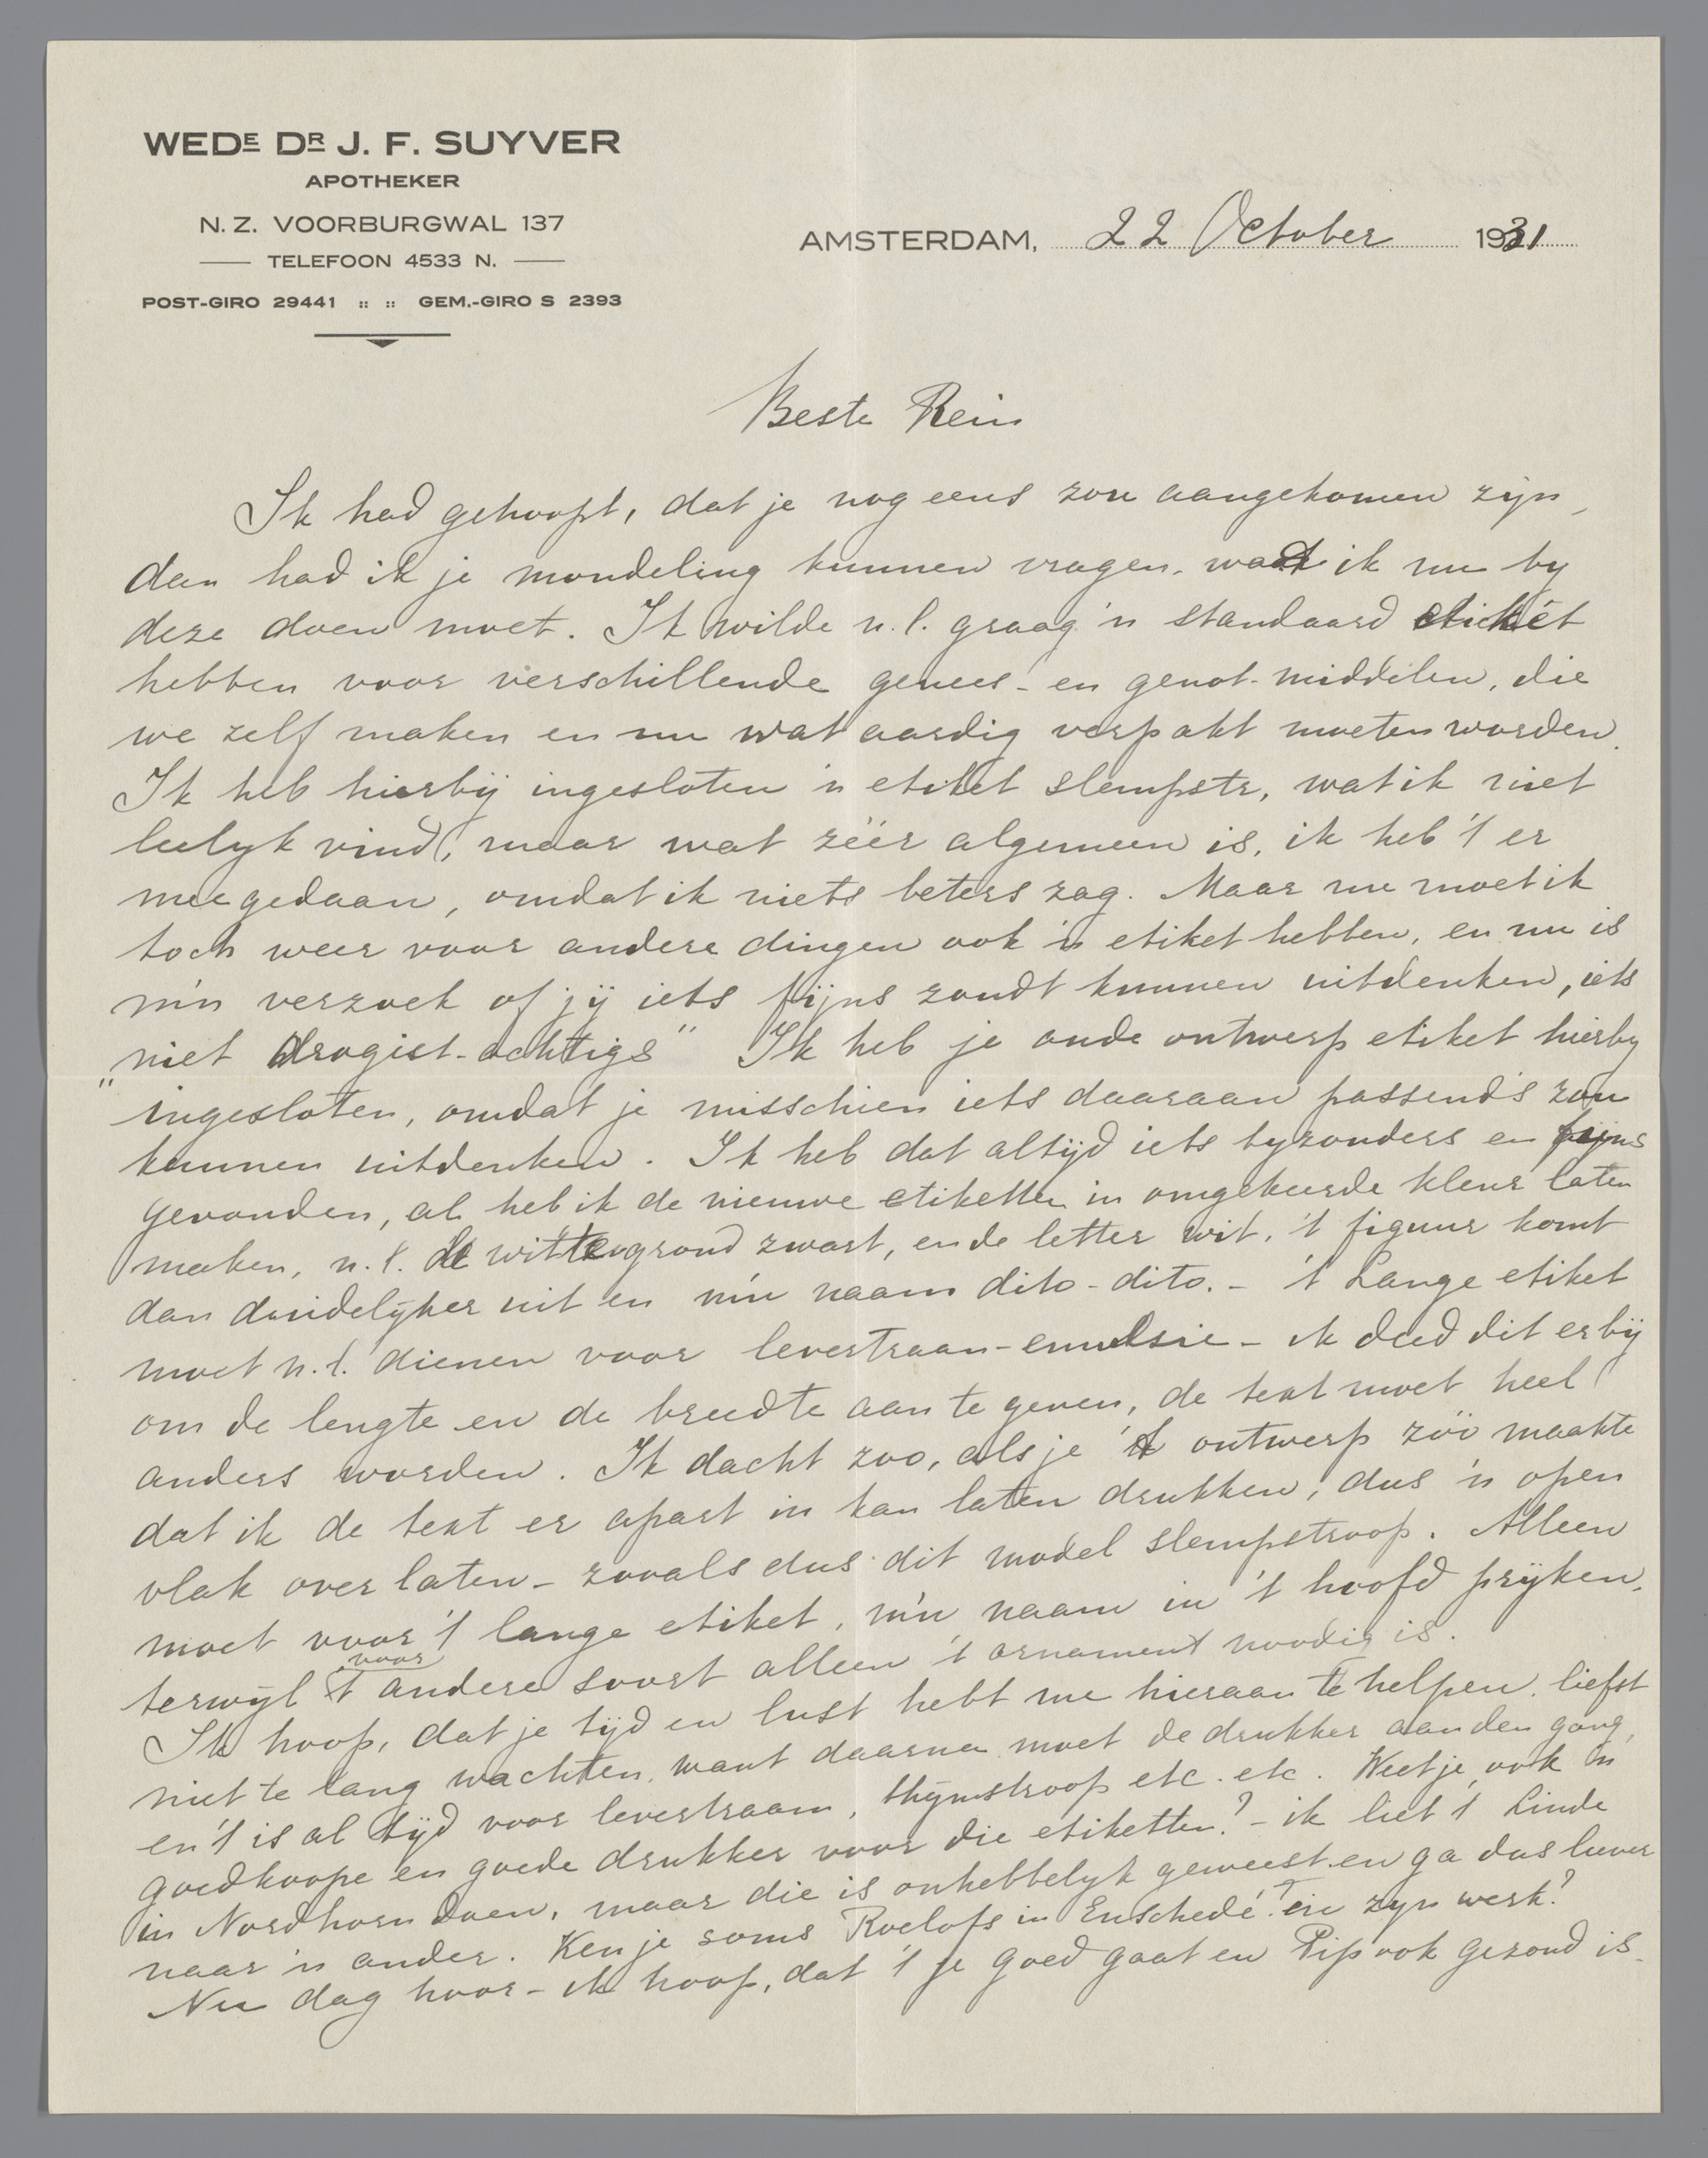 WEDE DR J. F. SUYVER
APOTHEKER
N. Z. VOORBURGWAL 137
TELEFOON 4533 N.
POST-GIRO 29441 :: :: GEM.-GIRO S 2393
AMSTERDAM, 22 October 1931
Beste Rein
Ik had gehoopt, dat je nog eens zou aangekomen zijn,
dan had ik je mondeling kunnen vragen, wat ik nu by
deze doen moet. Ik wilde n.l. graag 'n standaard etikèt
hebben voor verschillende genees- en genot-middelen, die
we zelf maken en nu wat aardig verpakt moeten worden.
Ik heb hierbij ingesloten 'n etiket slempstr, wat ik niet
leelyk vind, maar wat zéér algemeen is, ik heb 't er
mee gedaan, omdat ik niets beters zag. Maar nu moet ik
toch weer voor andere dingen ook 'n etiket hebben, en nu is
m'n verzoek of jij iets fijns zoudt kunnen uitdenken, iets
"niet drogist-achtigs" Ik heb je oude ontwerp etiket hierby
ingesloten, omdat je misschien iets daaraan passends zou
kunnen uitdenken. Ik heb dat altijd iets byzonders en fijns
gevonden, al heb ik de nieuwe etiketten in omgekeerde kleur laten
maken, n.l. de witte grond zwart, en de letter wit, 't figuur komt
dan duidelijker uit en m'n naam dito-dito. - 't Lange etiket
moet n.l. dienen voor levertraan-emulsie - ik deed dit erbij
om de lengte en de breedte aan te geven, de text moet heel
anders worden. Ik dacht zoo, als je 't ontwerp zóó maakte
dat ik de text er apart in kan laten drukken, dus 'n open
vlak over laten - zooals dus dit model slempstroop. Alleen
moet voor 't lange etiket, m'n naam in 't hoofd prijken,
terwijl voor 't andere soort alleen 't ornament noodig is.
Ik hoop, dat je tijd en lust hebt me hieraan te helpen, liefst
niet te lang wachten, want daarna moet de drukker aan den gang,
en 't is al tijd voor levertraan, thijmstroop etc. etc. Weet je ook 'n
goedkoope en goede drukker voor die etiketten? - ik liet 't Linde
in Nordhorn doen, maar die is onhebbelyk geweest en ga dus liever
naar 'n ander. Ken je soms Roelofs in Enschedé? en zyn werk?
Nu dag hoor - ik hoop, dat 't je goed gaat en Pip ook gezond is.